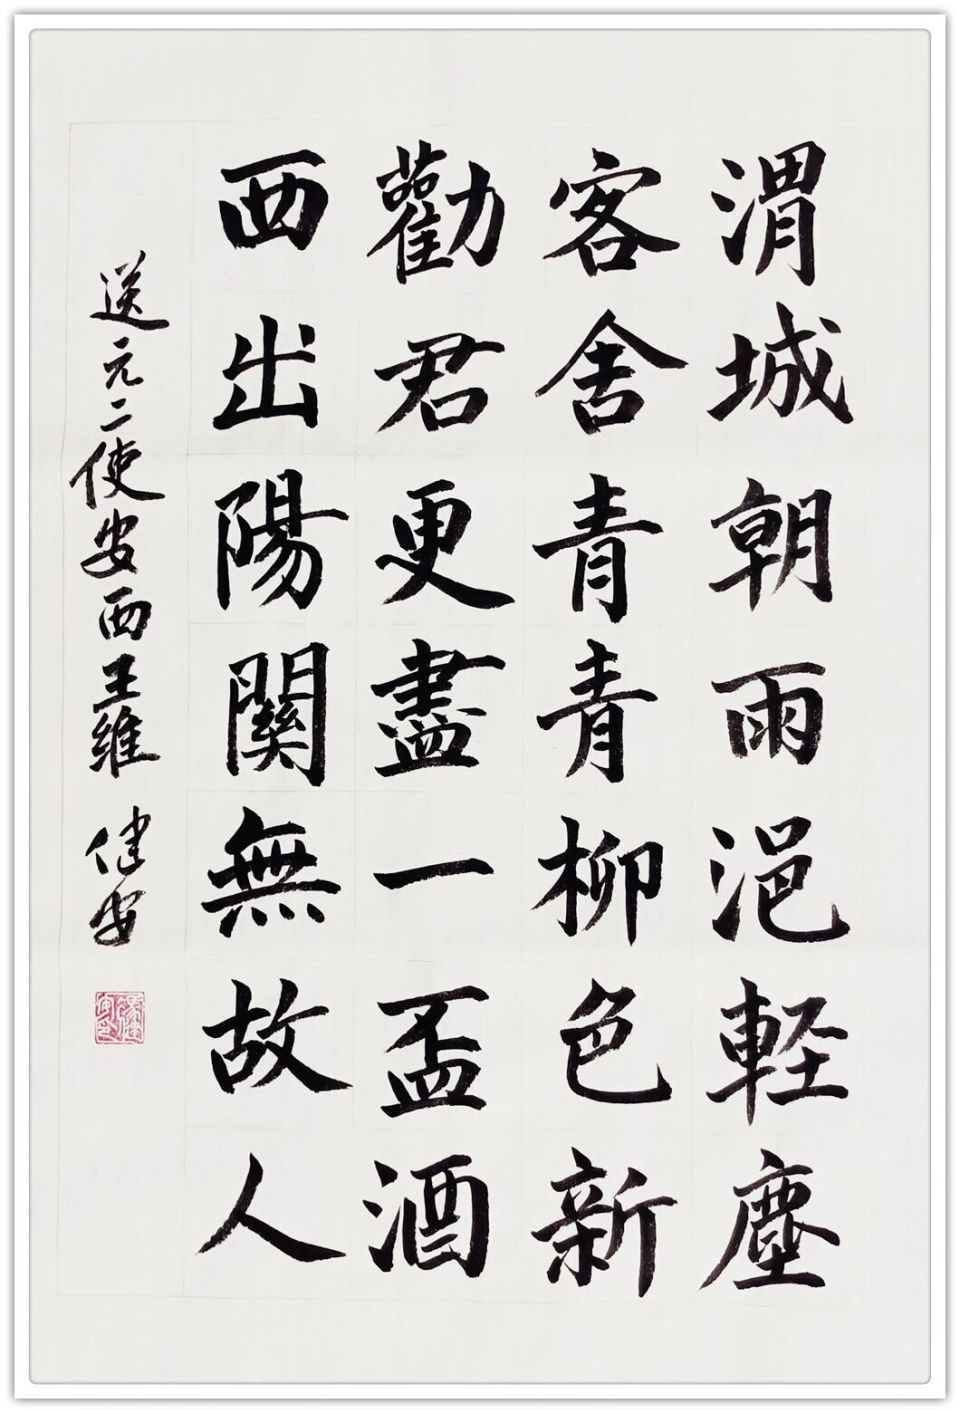 渭城朝雨浥軽塵
客舍青青柳色新
勸君更盡一盃酒
西出陽關無故人
送元二使安西王維 健安